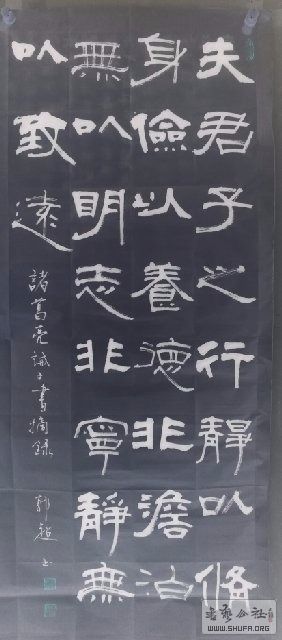 夫君子之行靜以脩
身儉以養德非澹泊
無以明志非寧靜無
以致遠
諸葛亮誡子書摘錄
郭超 書
書藝公社
WWW.SHUFA.ORG